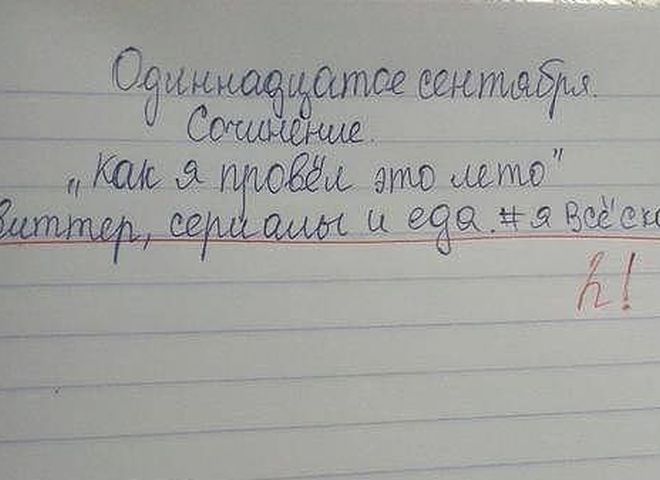 Одиннадцатое сентября.
Сочинение.
„Как я провёл это лето"
виттер, сериалы и еда. #я всё ска
2!